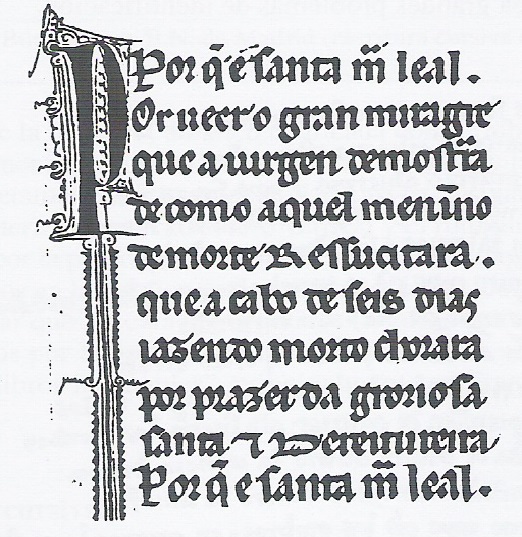 Por q̃ é santa m̃ leal .
POr ueer o gran miragre
que a uirgen demost̃ra
de como aquel menĩno
de morte Ressucitara .
que a cabo de seis dias
iazendo morto
por prazer da groriosa
santa ⁊ Dereitureira
Por q̃ e santa m̃ leal .